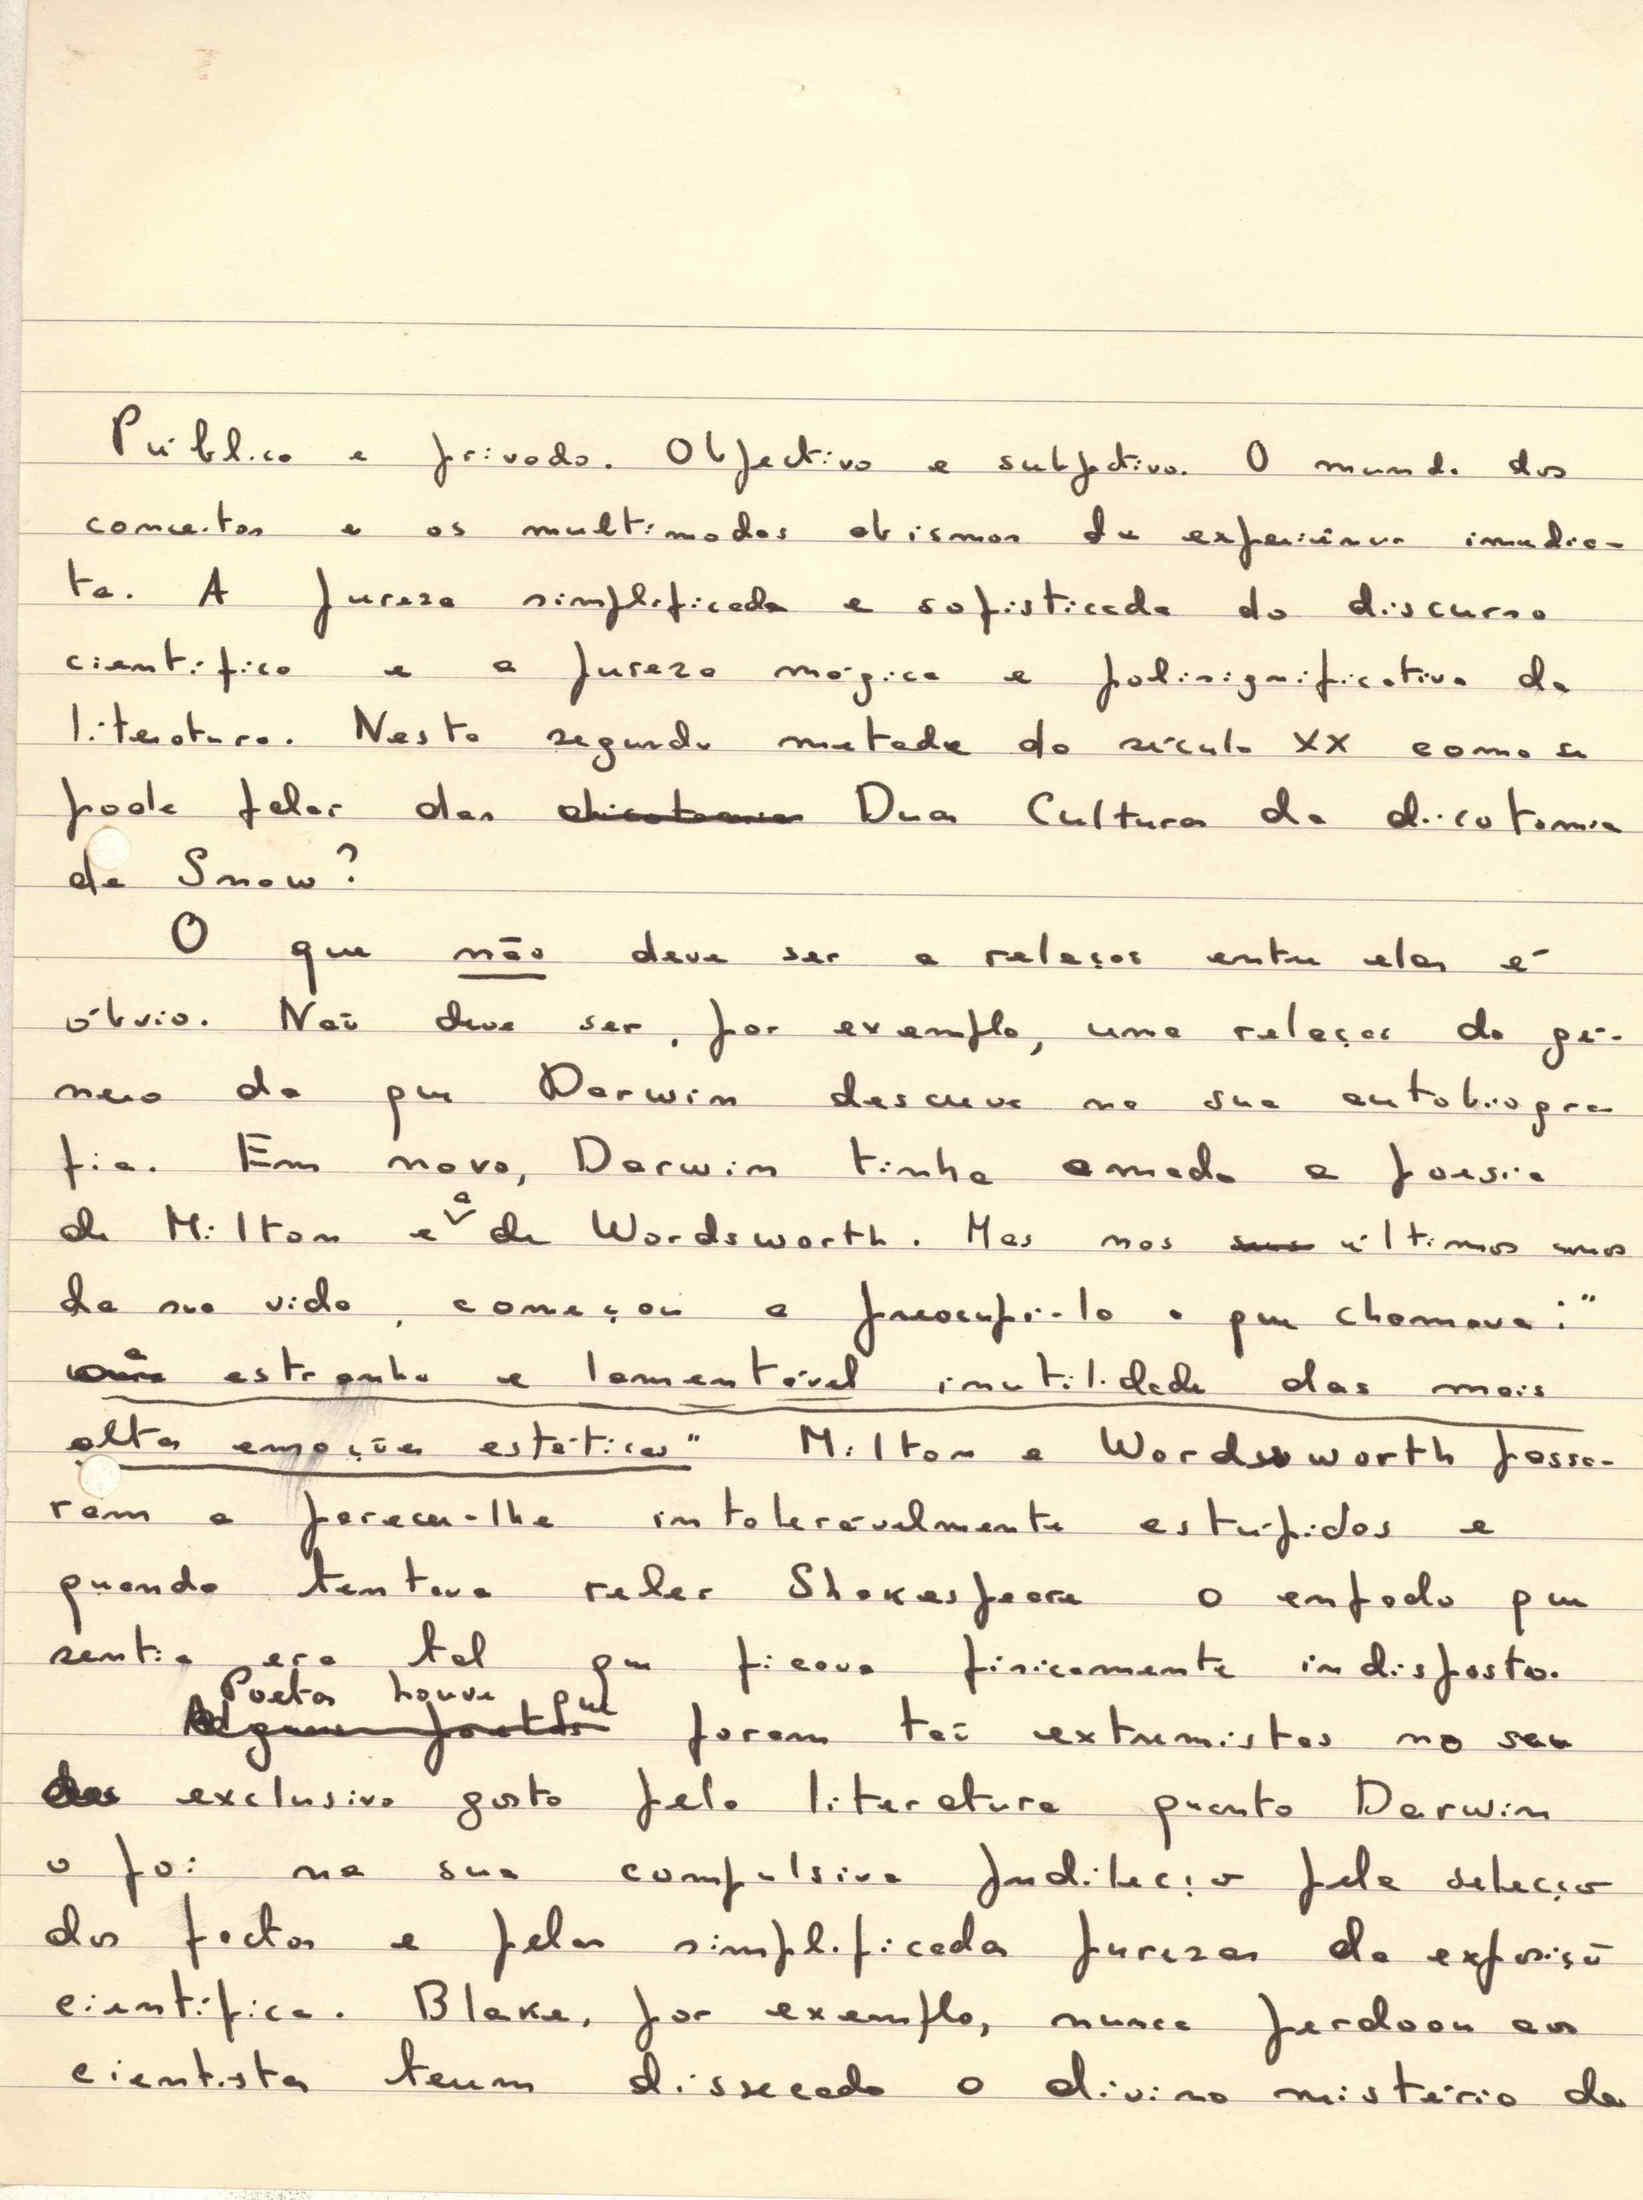 Público e privado. Objectivo e subjectivo. O mundo dos
conceitos e os multímodos abismos da experiência imedia-
ta. A pureza simplificada e sofisticada do discurso
científico e a pureza mágica e polisignificativa da
literatura. Nesta segunda metade do século XX como se
pode falar das dicotomias Duas Culturas da dicotomia
de Snow?
O que não deve ser a relação entre elas é
óbvio. Não deve ser, por exemplo, uma relação do gé-
nero da que Darwin descreve na sua autobiogra
fia. Em novo, Darwin tinha amado a poesia
de Milton e a de Wordsworth. Mas nos seus últimos anos
da sua vida, começou a preocupá-lo o que chamava: "
a estranha e lamentável inutilidade das mais
altas emoções estéticas" Milton e Wordsworth passa-
ram a parecer-lhe intoleravelmente estúpidos e
quando tentava reler Shakespeare o enfado que
sentia era tal que ficava fisicamente indisposto.
Poetas houve que
Alguns poetas foram tão extremistas no seu
exclusivo gosto pela literatura quanto Darwin
o foi na sua compulsiva predilecção pela selecção
dos factos e pelas simplificadas purezas da exposição
científica. Blake, por exemplo, nunca perdoou aos
cientistas terem dissecado o divino mistério da